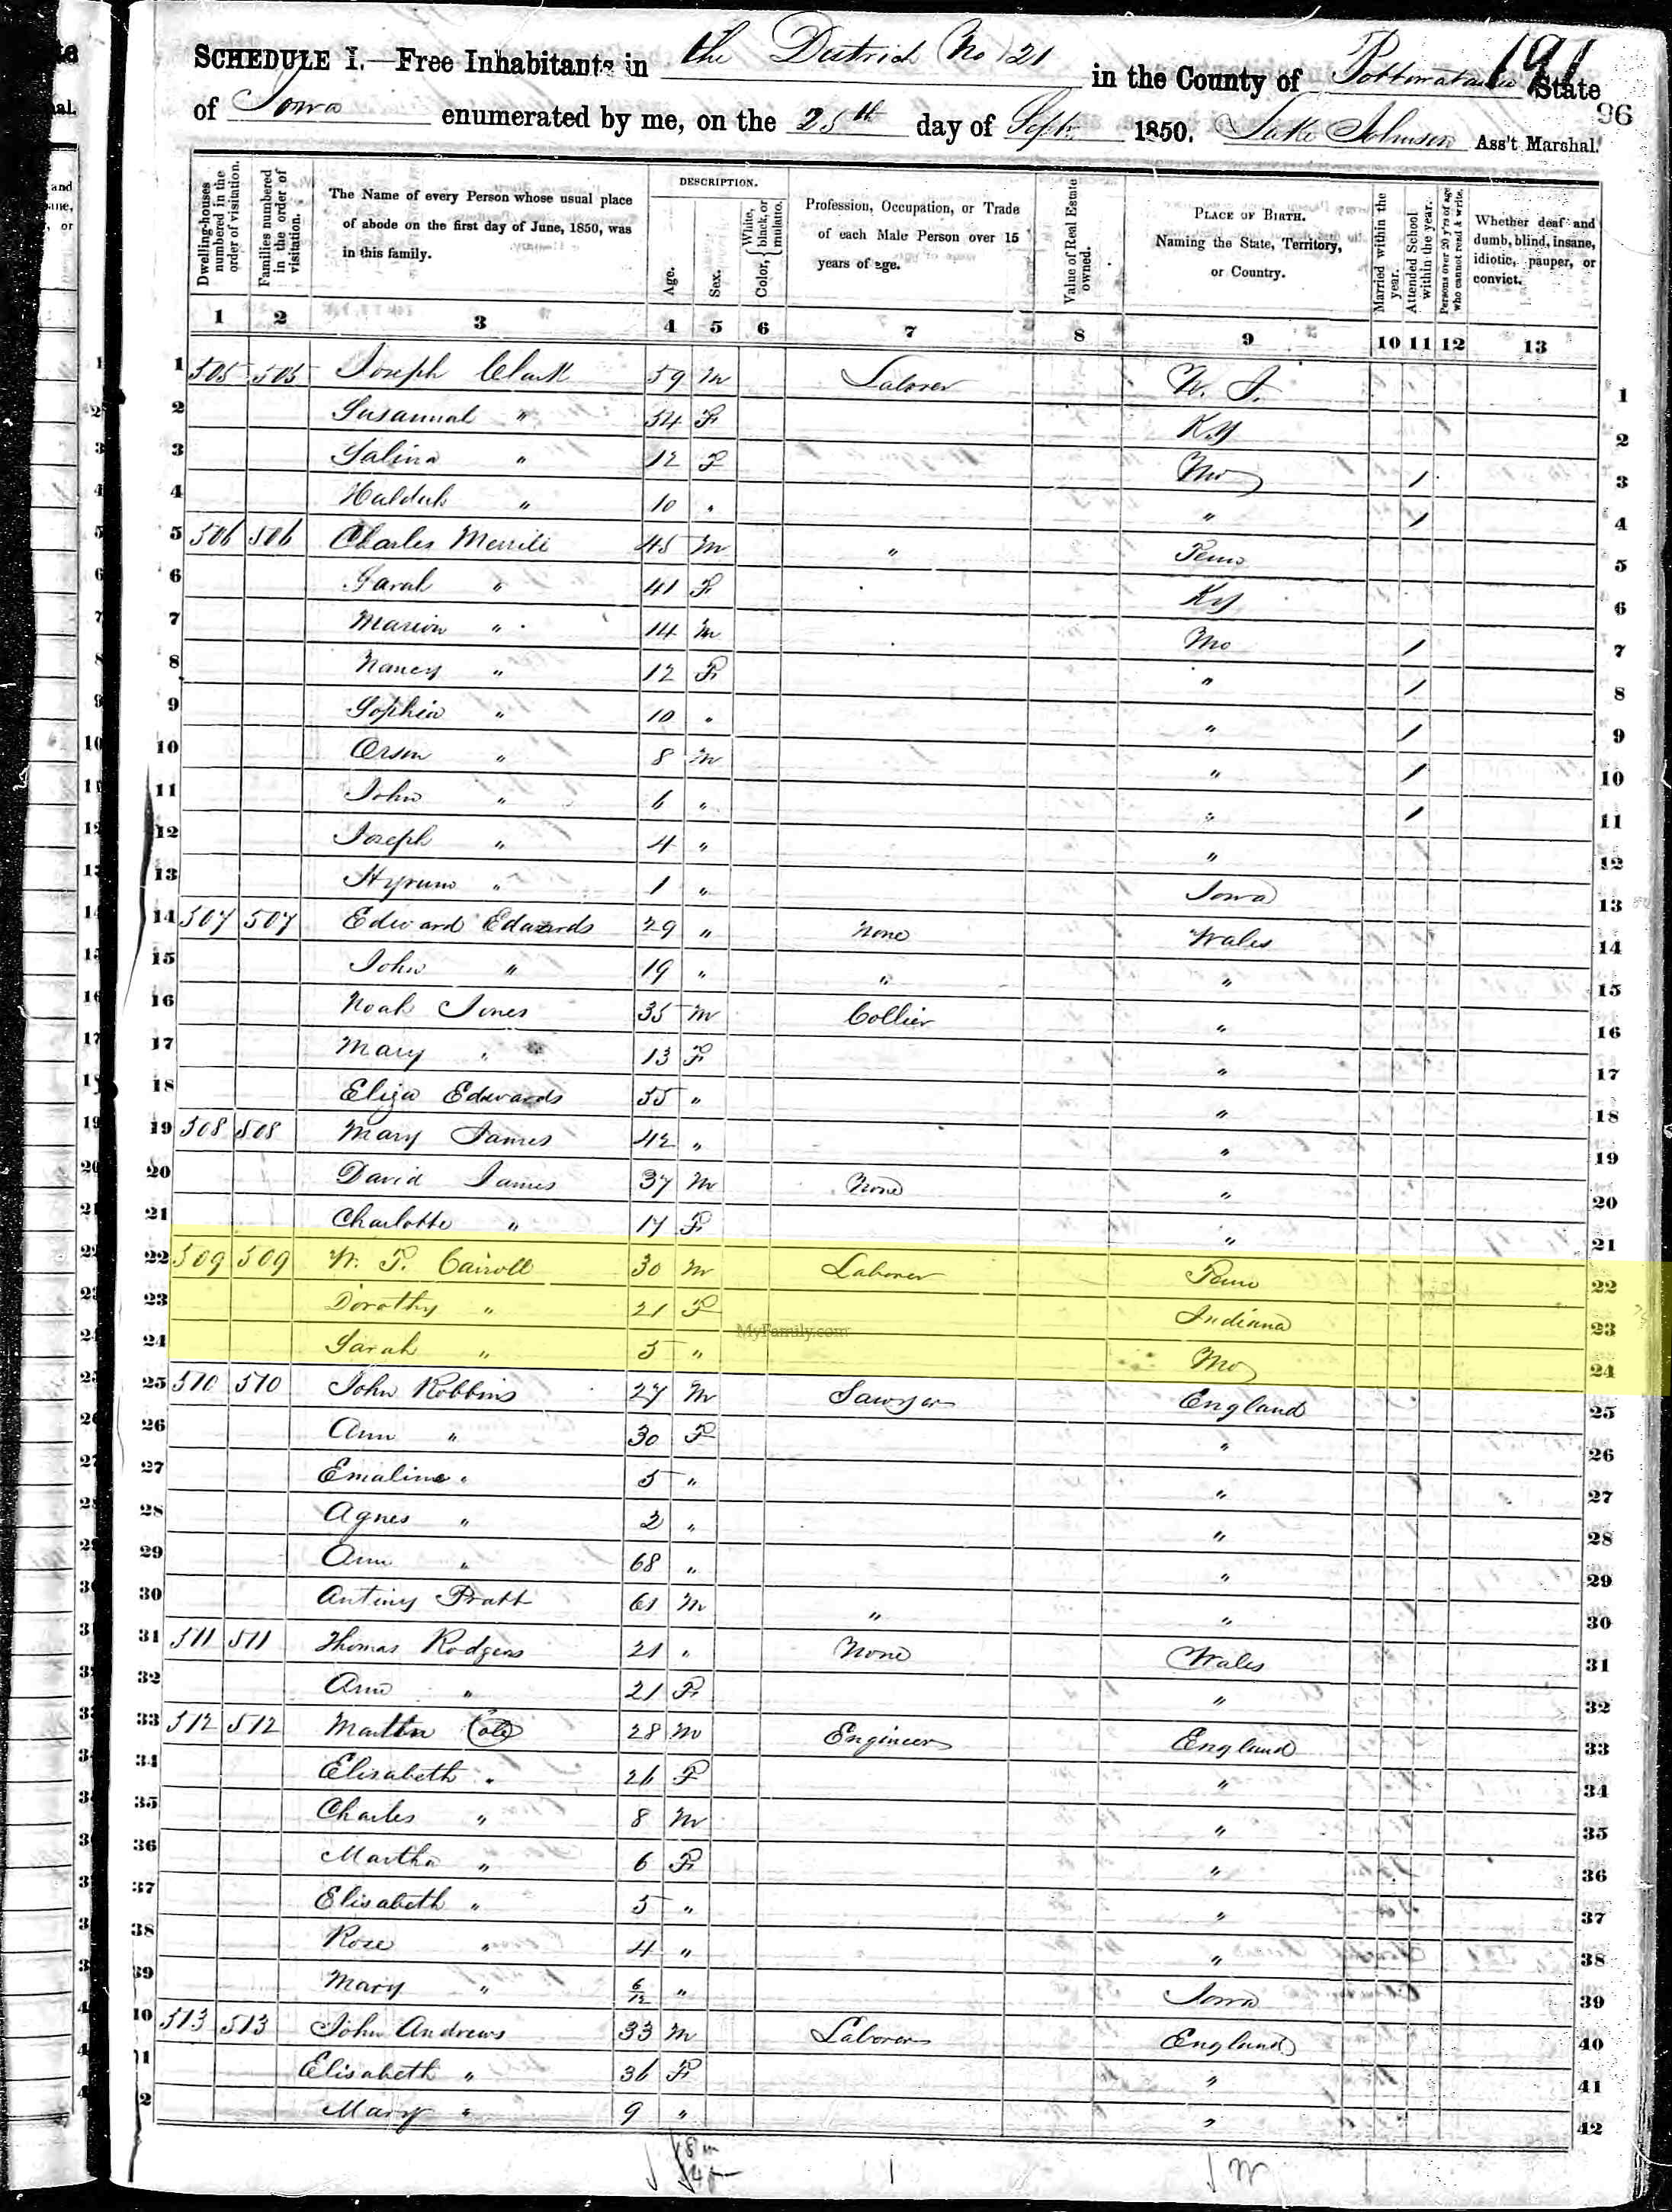 191
SCHEDULE I.—Free Inhabitants in the District No 21 in the County of Pottowatamie State
96
of Iowa enumerated by me, on the 25th day of Sept. 1850. Johnson Ass't Marshal.
Dwelling-houses numbered in the order of visitation.
Families numbered in the order of visitation.
The Name of every Person whose usual place of abode on the first day of June, 1850, was in this family.
DESCRIPTION.
Age.
Sex.
Color, { White, black, or mulatto.
Profession, Occupation, or Trade of each Male Person over 15 years of age.
Value of Real Estate owned.
PLACE OF BIRTH. Naming the State, Territory, or Country.
Married within the year.
Attended School within the year.
Persons over 20 y'rs of age who cannot read & write.
Whether deaf and dumb, blind, insane, idiotic, pauper, or convict.
1 2 3 4 5 6 7 8 9 10 11 12 13
1 505 505 Joseph Clark 59 M Laborer N. J. 1
2 Susannah " 54 F Ky 2
3 Salina " 12 F Mo / 3
4 " 10 " " / 4
5 506 506 Charles Merrill 45 M " Penn 5
6 Sarah " 41 F Ky 6
7 Marion " 14 M Mo / 7
8 Nancy " 12 F " / 8
9 Sophia " 10 " " / 9
10 Orson " 8 M " / 10
11 John " 6 " " / 11
12 Joseph " 4 " " 12
13 Hyrum " 1 " Iowa 13
14 507 507 Edward Edwards 29 " None Wales 14
15 John " 19 " " " 15
16 Noah Jones 35 M Collier " 16
17 Mary " 13 F " 17
18 Eliza Edwards 55 " " 18
19 508 508 Mary James 42 " " 19
20 David James 37 M None " 20
21 Charlotte " 17 F " 21
22 509 509 W. P. Carroll 30 M Laborer Penn 22
23 Dorothy " 21 F Indiana 23
MyFamily.com
24 Sarah " 5 " Mo 24
25 510 510 John Robbins 27 M Sawyer England 25
26 Ann " 30 F " 26
27 Emaline " 5 " " 27
28 Agnes " 2 " " 28
29 Ann " 68 " " 29
30 Antiny Pratt 61 M " " 30
31 511 511 Thomas Rodgers 21 " None Wales 31
32 Ann " 21 F " 32
33 512 512 Martin Cole 28 M Engineer England 33
34 Elisabeth " 26 F " 34
35 Charles " 8 M " 35
36 Martha " 6 F " 36
37 Elisabeth " 5 " " 37
38 Rose " 4 " " 38
39 Mary " 6/12 " Iowa 39
40 513 513 John Andrews 33 M Laborer England 40
Elisabeth " 36 F " 41
Mary " 9 " " 42